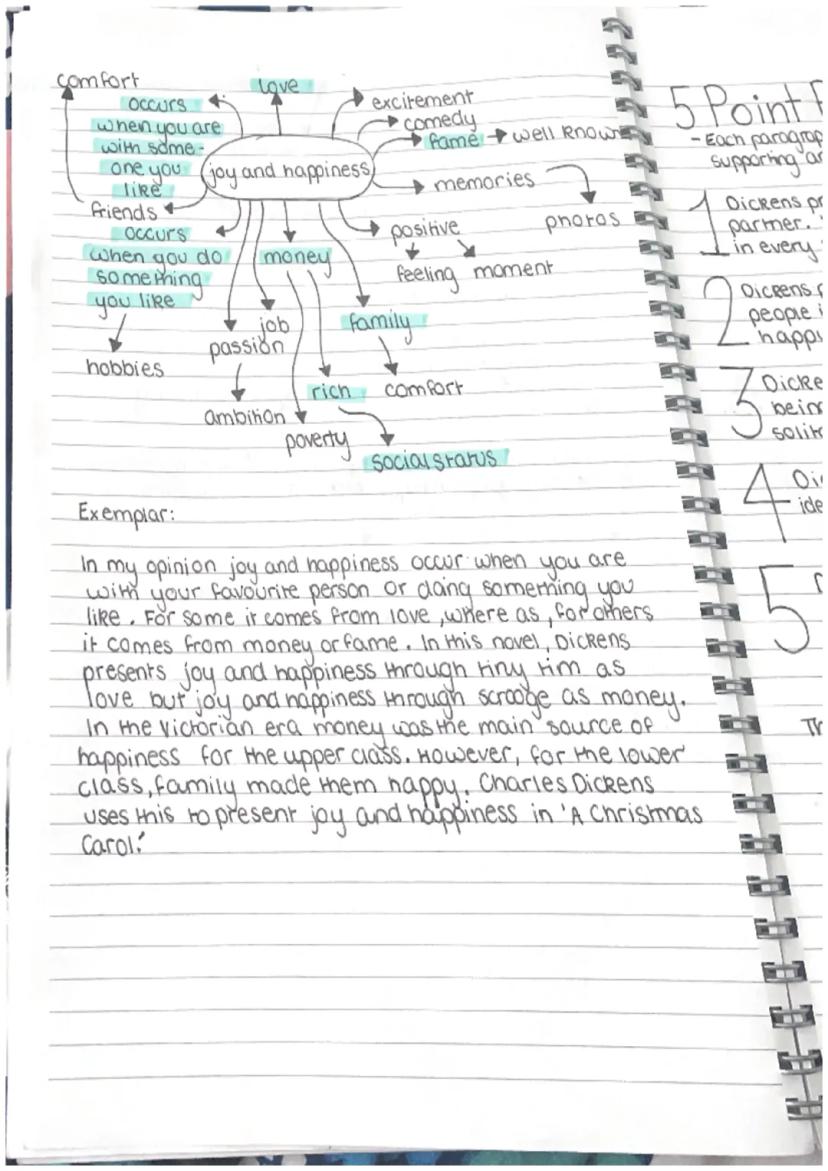 comfort
love
occurs
when you are
with some-
one you
like
excitement
comedy
fame → well known
joy and happiness
memories
photos
friends
positive
feeling moment
occurs
when you do
something
you like
hobbies
money
job
passion
ambition
family
comfort
rich
poverty
social status
Exemplar:
In my opinion joy and happiness occur when you are
with your favourite person or doing something you
like. For some it comes from love, where as, for others
it comes from money or fame. In this novel, Dickens
presents joy and happiness through tiny tim as
love but joy and happiness through scrooge as money.
In the Victorian era money was the main source of
happiness for the upper class. However, for the lower
class, family made them happy. Charles Dickens
uses this to present joy and happiness in 'A Christmas
Carol.'
5 Point
- Each paragrap
supporting
1 Dickens
partner.
in every
2 Dickens
people
happ
3 Dicke
bein
solit
4 Di
ide
5
Th